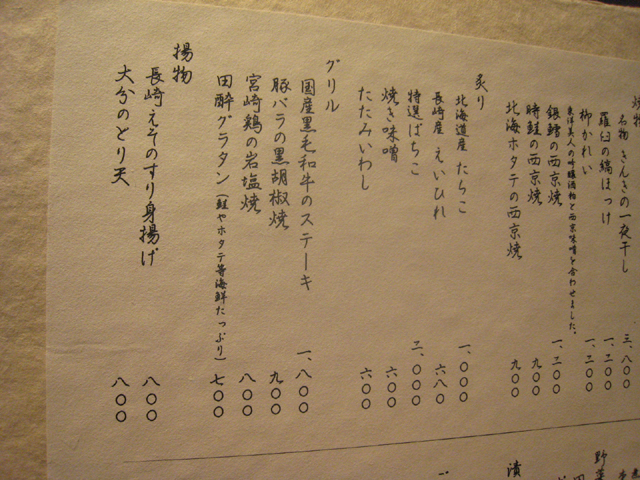 焼物
名物 きんきの一夜干し 三、八〇〇
羅臼の縞ほっけ 一、二〇〇
柳かれい 一、二〇〇
銀鱈の西京焼 一、二〇〇
東洋美人の吟醸酒粕と西京味噌を合わせました。
時鮭の西京焼 九〇〇
北海ホタテの西京焼 九〇〇
炙り
北海道産 たらこ 一、〇〇〇
長崎産 えいひれ 六八〇
特選ばちこ 二、〇〇〇
焼き味噌 六〇〇
たたみいわし 六〇〇
グリル
国産黒毛和牛のステーキ 一、八〇〇
豚バラの黒胡椒焼 九〇〇
宮崎鶏の岩塩焼 八〇〇
田酔グラタン（鮭やホタテ等海鮮たっぷり） 七〇〇
揚物
長崎えそのすり身揚げ 八〇〇
大分のとり天 八〇〇
野菜
漬